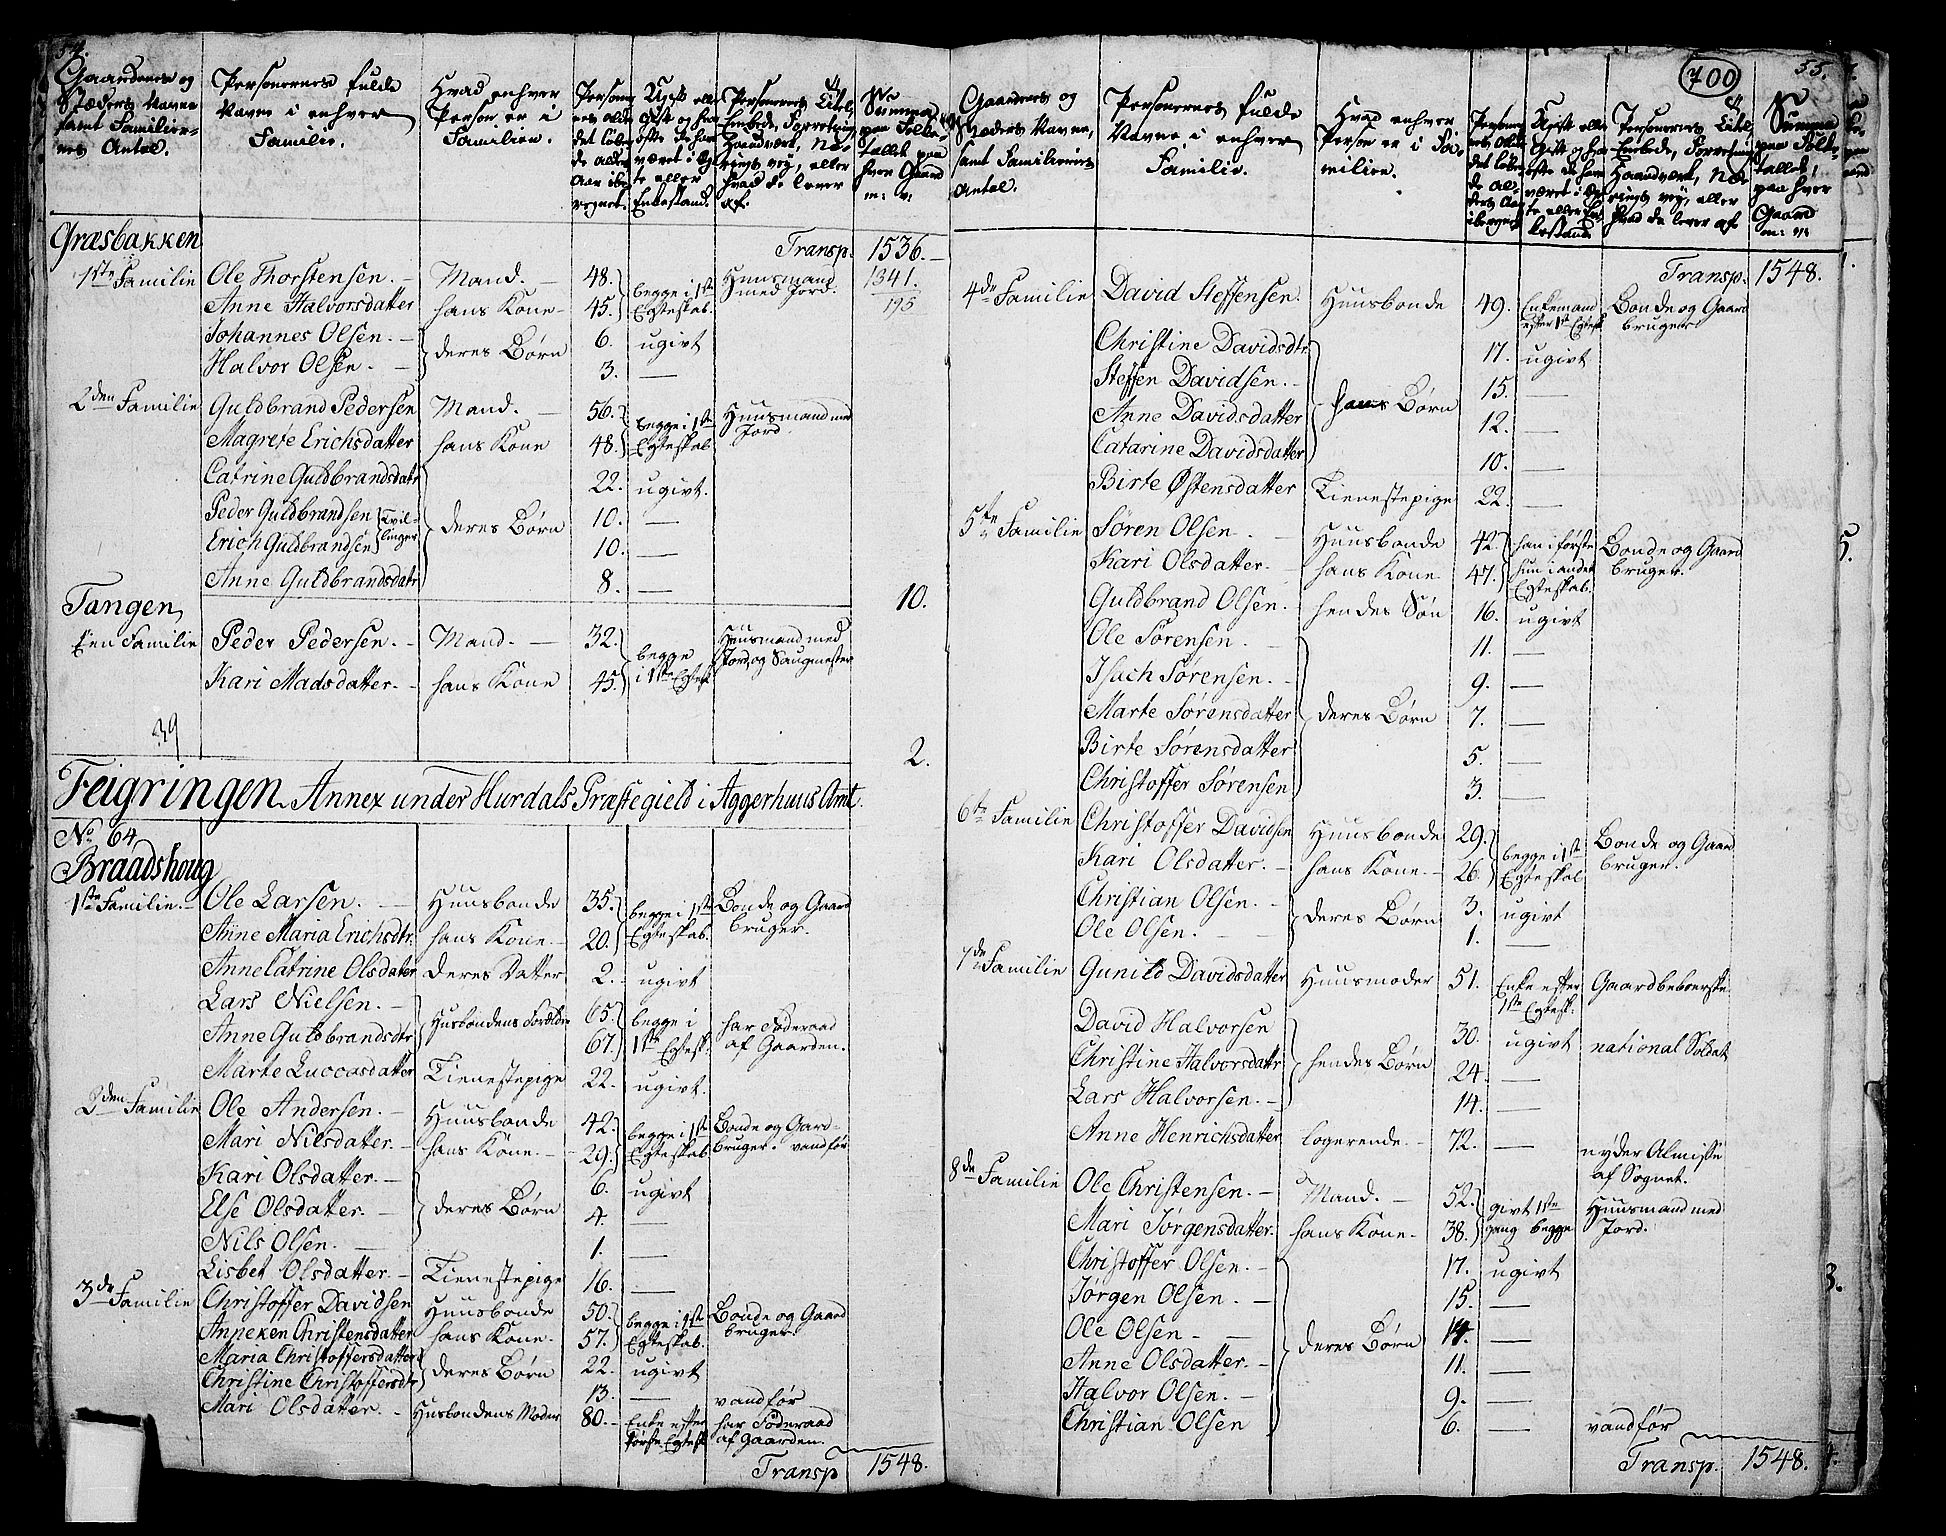 54.
Gaardenes og Stæders Navne samt Familiernes Antal.
Personernes fulde Navne i enhver Familie.
Hvad enhver Person er i Familien.
Personernes Alder det løbende Alders Aar iberegnet.
Ugift eller Gift og hvor ofte de have været i Egte eller Enkestand.
Personernes Titel, Embede, Forretning, Haandværk, Nærings vej, eller hvad de lever af.
Summa paa Folketallet paa hver Gaard
Græsbakken Transp. 1536.
1ste Familie Ole Thorstensen. Mand. 48. begge i 1ste Egteskab. Huusmand med Jord. 1341.
195
Anne Halvorsdatter hans Kone 45.
Johannes Olsen. deres Børn 6. ugivt
Halvor Olsen. 3. —
2den Familie Guldbrand Pedersen Mand. 56. begge i 1ste Egteskab Huusmand med Jord
Magrete Erichsdatter hans Kone 48.
Catrine Guldbrandsdatr 22. ugivt.
Peder Guldbrandsen Tvillinger deres Børn 10. —
Erich Guldbrandsen 10. —
Anne Guldbrandsdatr 8. —
10.
Tangen
Een Familie Peder Pedersen. Mand. 32. begge i 1ste Egtesk. Huusmand med Jord og Saugmester
Kari Madsdatter. hans Kone 45.
39
2.
Feigringen Annex under Hurdals Præstegield i Aggerhuus Amt.
No 64
Braadshoug
1ste Familie. Ole Larsen. Huusbonde 35. begge i 1ste Egteskab. Bonde og Gaard bruger.
Anne Maria Erichsdtr. hans Kone. 20.
Anne Catrine Olsdater deres Datter 2. ugivt
Lars Nielsen. Husbondens Forældre 65. begge i 1ste Egtesk. har Føderaad af Gaarden.
Anne Guldbrandsdtr 67.
Marte Luccasdatter Tienestepige 22. ugivt.
2den Familie Ole Andersen. Huusbonde 42. begge i 1ste Egteskab Bonde og Gard-bruger. vandfør
Mari Nilsdatter. hans Kone. 29.
Kari Olsdatter. deres Børn 6. ugivt
Else Olsdatter. 4. —
Nils Olsen. 1. —
Lisbet Olsdatter. Tienestepige 16. —
3de Familie Christoffer Davidsen Huusbonde 50. begge i 1ste Egteskab. Bonde og Gaard bruger.
Anneken Christensdatter hans Kone. 57.
Maria Christoffersdatter deres Børn 22. ugivt
Christine Christoffersdtr 13. — vandfør
Mari Olsdatter. Husbondens Moder 80. Enke efter første Egtesk. har Føderaad af Gaarden.
Transp 1548.
700
55.
Gaardenes og Stæders Navne, samt Familiernes Antal.
Personernes fulde Navne i enhver Familie.
Hvad enhver Person er i Familien.
Personernes Alder det løbende Alders Aar iberegnet
Ugift eller Gift og hvor ofte de have været i Egte eller Enkestand
Personernes Titel, Embede, Forretning, Haandværk, Nærings vej, eller hvad de lever af
Summa paa Folketallet, paa hver Gaard
Transp. 1548.
4de Familie David Steffensen. Huusbonde 49. Enkemand efter 1ste Egtesk. Bonde og Gaard bruger.
Christine Davidsdtr hans Børn 17. ugivt
Steffen Davidsen. 15. —
Anne Davidsdatter 12. —
Catarine Davidsdatter 10. —
Birte Østensdatter Tienestepige 22. —
5te Familie Søren Olsen Huusbonde 42. han i første hun i andet Egteskab. Bonde og Gaard bruger.
Kari Olsdatter. hans Kone 47.
Guldbrand Olsen. hendes Søn 16. ugivt
Ole Sørensen. deres Børn 11. —
Isach Sørensen. 9. —
Marte Sørensdatter 7. —
Birte Sørensdatter 5. —
Christoffer Sørensen 3. —
6te Familie Christoffer Davidsen Huusbonde 29. begge i 1ste Egteskab Bonde og Gaard bruger.
Kari Olsdatter. hans Kone. 26.
Christian Olsen. deres Børn 3. ugivt
Ole Olsen. 1. —
7de Familie Gunild Davidsdatter Huusmoder 51. Enke efter 1ste Egtesk. Gaardbeboerske
David Halvorsen hendes Børn 30. ugivt national Soldat
Christine Halvorsdatr 24. —
Lars Halvorsen. 14. —
Anne Henrichsdatter logerende. 72. — nyder Almisse af Sognet.
8de Familie Ole Christensen. Mand. 52. givt 1ste gang begge Huusmand med Jord.
Mari Jørgensdatter. hans Kone. 38.
Christoffer Olsen. deres Børn 17. ugivt
Jørgen Olsen. 15. —
Ole Olsen 14. —
Anne Olsdatter. 11. —
Halvor Olsen. 9. —
Christian Olsen 6. — vandfør
Transp. 1548.
1.
5.
3.
4.